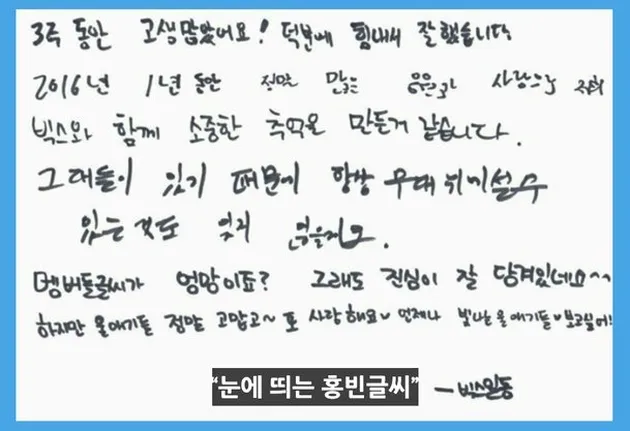 3주 동안 고생많았어요! 덕분에 힘내서 잘했습니다
2016년 1년 동안 정말 많은 응원과 사랑으로 저희
빅스와 함께 소중한 추억을 만든거 같습니다.
그대들이 있기 때문에 항상 무대 위에 설 수
있는 것도 잊지 않을게요.
멤버들글씨가 엉망이죠? 그래도 진심이 잘 담겨있네요~~
하지만 울애기들 정말 고맙고~ 또 사랑해요♥ 언제나 빛나는 울애기들♥보고싶어!
“눈에 띄는 홍빈글씨”
-빅스완동